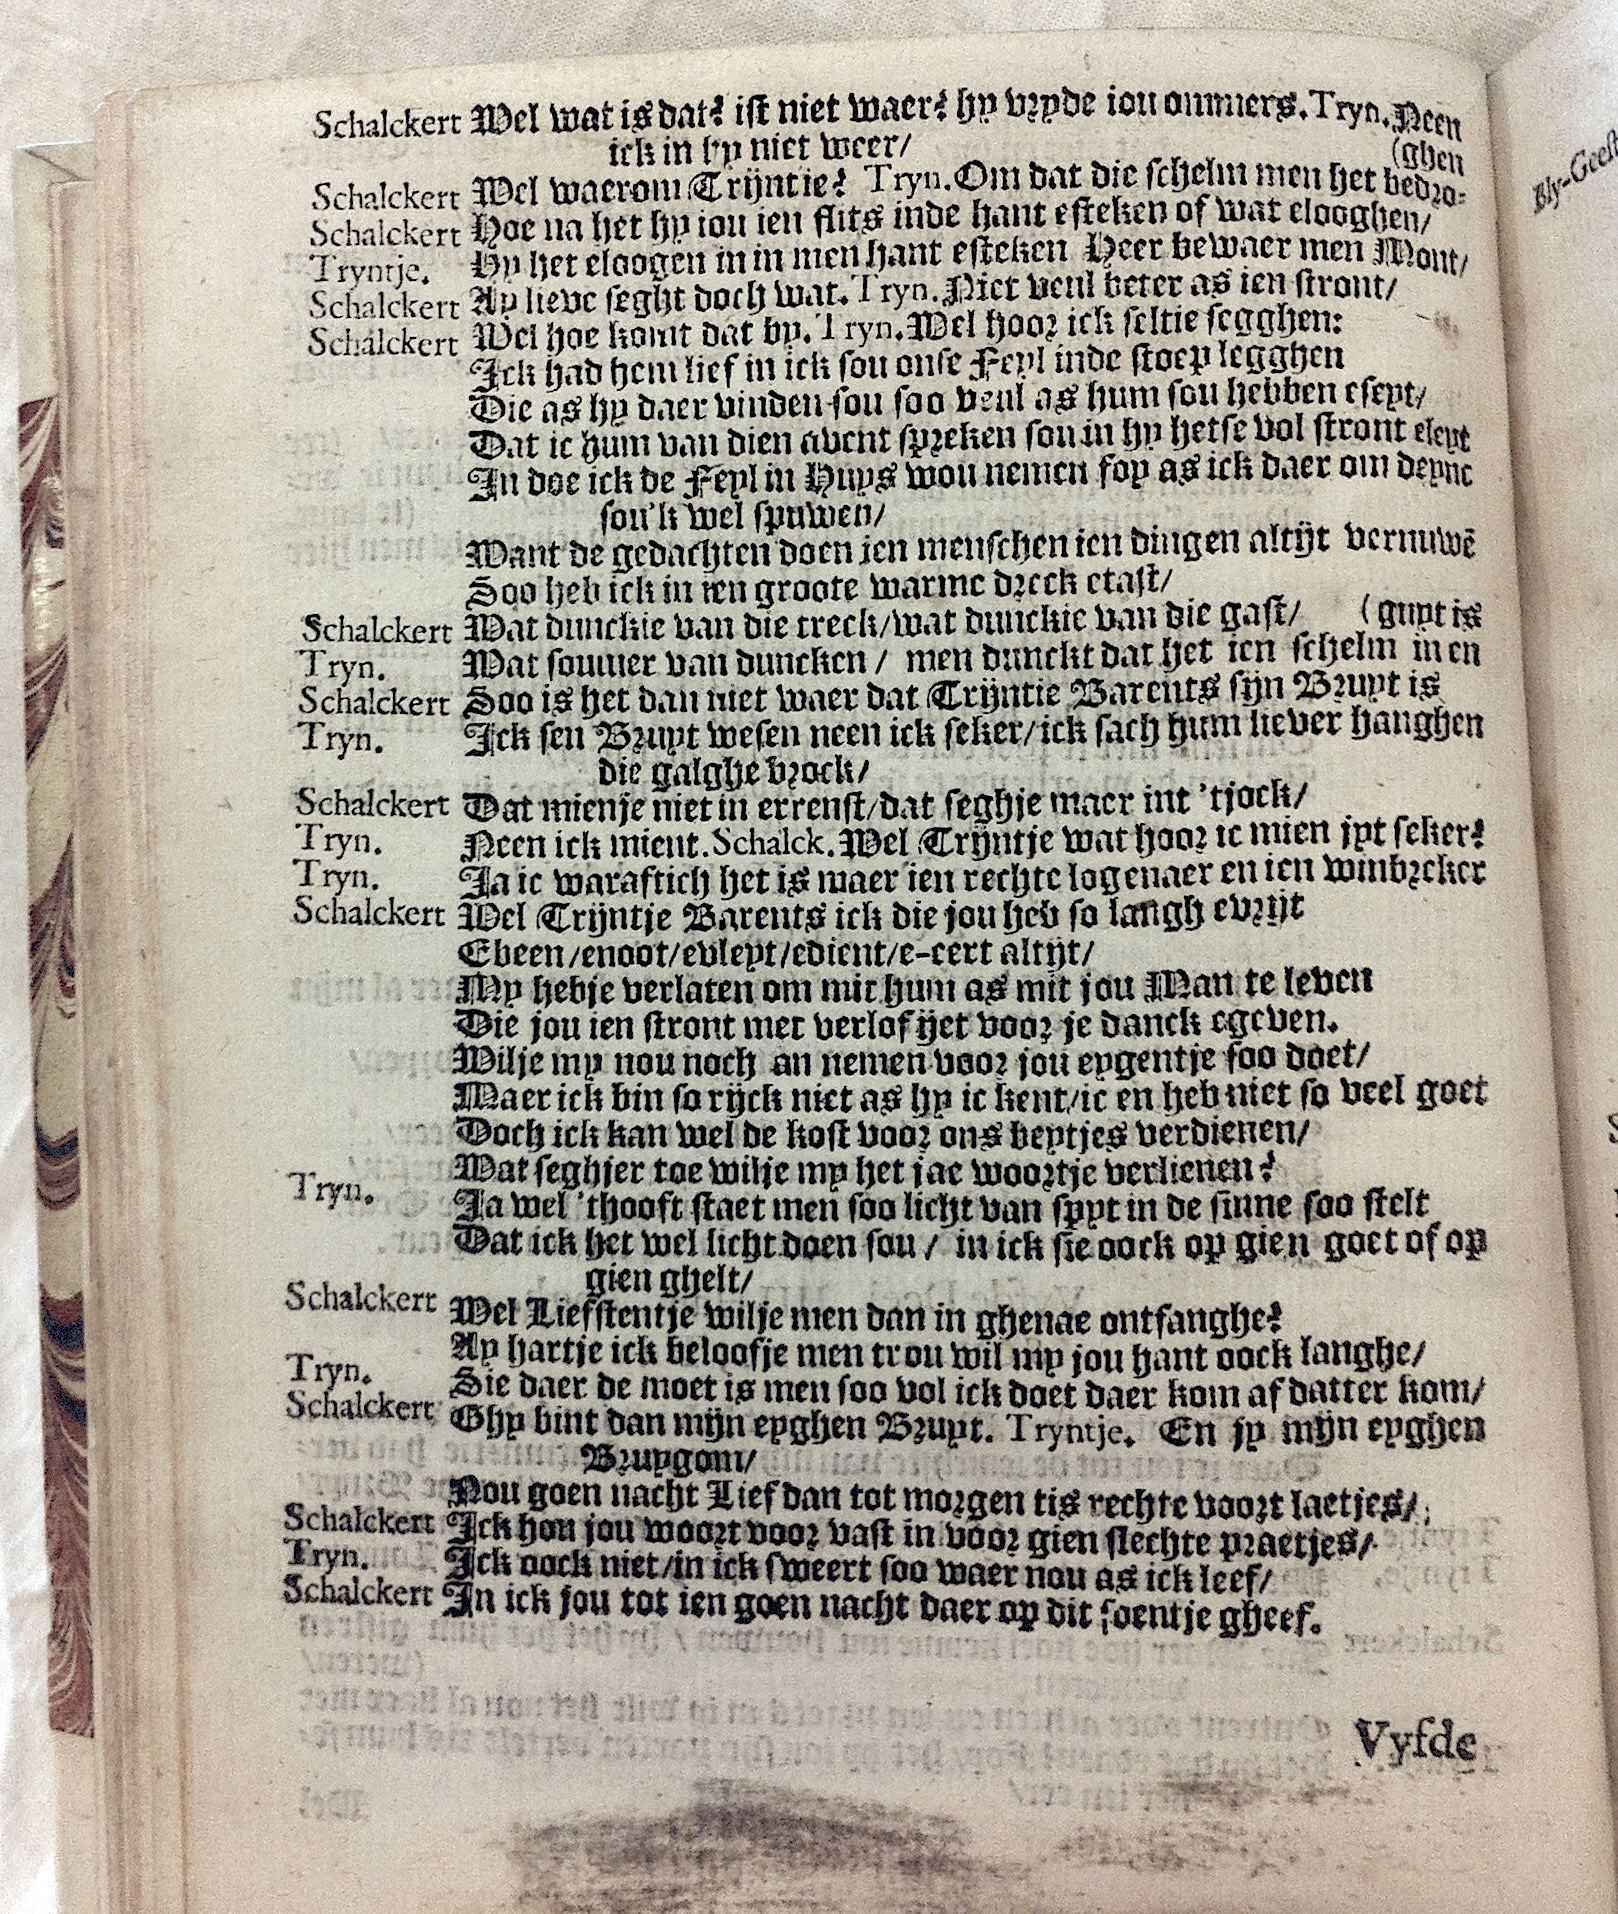 Schalckert Wel wat is dat? ist niet waer? hy vryde iou ommers. Tryn. Neen
ick in hy niet weer/ (ghen
Schalckert Wel waerom Trijntie? Tryn. Om dat die schelm men het bedro-
Schalckert Hoe na het hy iou ien flits inde hant esteken of wat elooghen/
Tryntje. Hy het eloogen in in men hant esteken Heer bewaer men Mont/
Schalckert Ay lieve seght doch wat. Tryn. Niet veul beter as ien stront/
Schalckert Wel hoe komt dat by. Tryn. Wel hoor ick seltie segghen:
Ick had hem lief in ick sou onse Feyl inde stoep legghen
Die as hy daer vinden sou soo veul as hum sou hebben eseyt/
Dat ic hum van dien avent spreken sou in hy hetse vol stront eleyt
In doe ick de Feyl in Huys wou nemen foy as ick daer om deync
sou'k wel spuwen/
Want de gedachten doen ien menschen ien dingen altijt vernuwē
Soo heb ick in ien groote warme dreck etast/
Schalckert Wat dunckie van die treck/wat dunckie van die gast/ (guyt is
Tryn. Wat sommer van duncken / men dunckt dat het ien schelm in en
Schalckert Soo is het dan niet waer dat Trijntie Barents sijn Bruyt is
Tryn. Ick sen Bruyt wesen neen ick seker/ick sach hum liever hanghen
die galghe brock/
Schalckert Dat mienje niet in errenst/dat seghje maer int 'tjock/
Tryn. Neen ick mient. Schalck. Wel Trijntje wat hoor ic mien jyt seker?
Tryn. Ja ic waraftich het is maer ien rechte logenaer en ien winbreker
Schalckert Wel Trijntje Barents ick die jou heb so langh evrijt
Ebeen/enoot/evleyt/edient/e-eert altijt/
My hebje verlaten om mit hum as mit jou Man te leven
Die jou ien stront met verlof ijet voor je danck egeven.
Wilje my nou noch an nemen voor jou eygentje soo doet/
Maer ick bin so rijck niet as hy ic kent/ic en heb niet so veel goet
Doch ick kan wel de kost voor ons beytjes verdienen/
Wat seghjer toe wilje my het jae woortje verlienen?
Tryn. Ja wel 'thooft staet men soo licht van spyt in de sinne soo stelt
Dat ick het wel licht doen sou / in ick sie oock op gien goet of op
gien ghelt/
Schalckert Wel Liefstentje wilje men dan in ghenae ontfanghe?
Ay hartje ick beloofje men trou wil my jou hant oock langhe/
Tryn. Sie daer de moet is men soo vol ick doet daer kom af datter kom/
Schalckert Ghy bint dan mijn eyghen Bruyt. Tryntje. En jy mijn eyghen
Bruygom/
Nou goen nacht Lief dan tot morgen tis rechte voort laetjes/
Schalckert Ick hou jou woort voor vast in voor gien slechte praetjes/
Tryn. Ick oock niet/in ick sweert soo waer nou as ick leef/
Schalckert In ick jou tot ien goen nacht daer op dit soentje gheef.
Vyfde
Bly-Geest